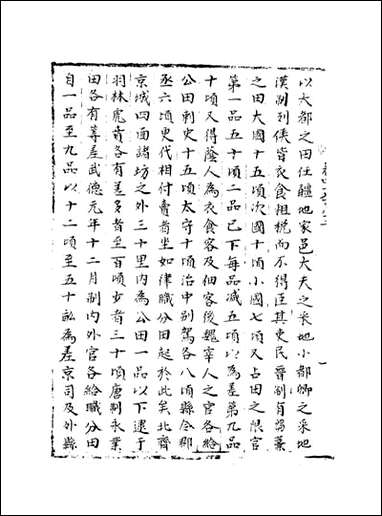 以大都之田任畺地家邑大夫之采地小都卿之采地
漢制列侯皆衣食租稅而不得臣其吏民晉制有芻藁
之田大國十五頃次國十頃小國七頃又占田之限官
第一品五十頃二品已下每品减五頃以為差第九品
十頃又得蔭人為衣食客及佃客後魏宰人之官各給
公田刺史十五頃太守十頃治中别駕各八頃縣令郡
丞六頃更代相付賣者坐如律職分田起於此矣北齊
京城四面諸坊之外三十里内為公田一品以下逮于
羽林虎賁各有差多者至百頃少者三十頃唐制永業
田各有等差武德元年十二月制内外官各給職分田
自一品至九品以十二頃至五十畝為差京司及外縣